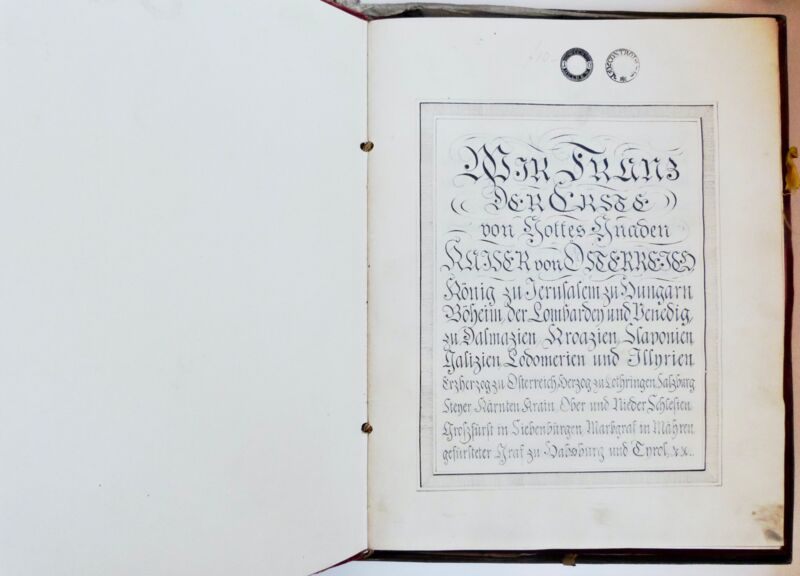 Wir Franz
der Erste
von Gottes Gnaden
Kaiser von Österreich
König zu Jerusalem zu Hungarn
Böheim der Lombardey und Venedig
zu Dalmazien Kroazien Slavonien
Galizien Lodomerien und Illyrien
Erzherzog zu Österreich Herzog zu Lothringen Salzburg
Steyer Kärnten Krain Ober und Nieder Schlesien
Großfürst in Siebenbürgen Markgraf in Mähren
gefürsteter Graf zu Habsburg und Tyrol